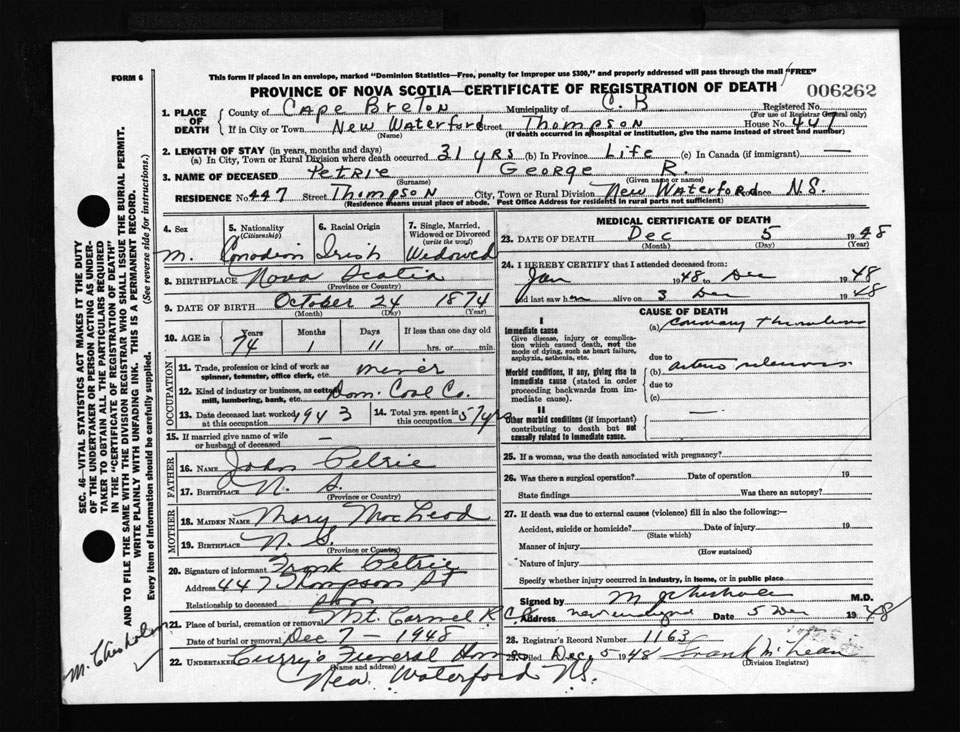 FORM 6
This form if placed in an envelope, marked "Dominion Statistics—Free, penalty for improper use $300," and properly addressed will pass through the mail "FREE"
PROVINCE OF NOVA SCOTIA—CERTIFICATE OF REGISTRATION OF DEATH 006262
1. PLACE OF DEATH
County of Cape Breton Municipality of C. B Registered No.
(For use of Registrar General only)
If in City or Town New Waterford Street Thompson House No. 447
(Name) (If death occurred in a hospital or institution, give the name instead of street and number)
2. LENGTH OF STAY (in years, months and days)
(a) In City, Town or Rural Division where death occurred 31 yrs (b) In Province Life (c) In Canada (if immigrant) —
3. NAME OF DECEASED Petrie George R.
(Surname) (Given name or names)
RESIDENCE No. 447 Street Thompson City, Town or Rural Division New Waterford Province N.S.
(Residence means usual place of abode. Post Office Address for residents in rural parts not sufficient)
4. Sex 5. Nationality (Citizenship) 6. Racial Origin 7. Single, Married, Widowed or Divorced (write the word)
m. Canadian Irish Widowed
8. BIRTHPLACE Nova Scotia
(Province or Country)
9. DATE OF BIRTH October 24 1874
(Month) (Day) (Year)
10. AGE in Years Months Days If less than one day old
74 1 11 hrs. or min.
OCCUPATION
11. Trade, profession or kind of work as spinner, teamster, office clerk, etc. miner
12. Kind of industry or business, as cotton mill, lumbering, bank, etc. Dom. Coal Co.
13. Date deceased last worked at this occupation 1943 14. Total yrs. spent in this occupation 57 yrs
15. If married give name of wife or husband of deceased —
FATHER
16. NAME John Petrie
17. BIRTHPLACE N. S.
(Province or Country)
MOTHER
18. MAIDEN NAME Mary MacLeod
19. BIRTHPLACE N. S.
(Province or Country)
20. Signature of informant Frank Petrie
Address 447 Thompson St
Relationship to deceased son
21. Place of burial, cremation or removal Mt. Carmel R. C.
Date of burial or removal Dec 7 – 1948
22. UNDERTAKER Curry's Funeral Home
(Name and address)
New Waterford N.S.
MEDICAL CERTIFICATE OF DEATH
23. DATE OF DEATH Dec 5 1948
(Month) (Day) (Year)
24. I HEREBY CERTIFY that I attended deceased from:
Jan 1948 to Dec 1948
and last saw him alive on 3 Dec 1948
CAUSE OF DEATH
I
Immediate cause
Give disease, injury or complication which caused death, not the mode of dying, such as heart failure, asphyxia, asthenia, etc.
(a) Coronary thrombosis
due to
Morbid conditions, if any, giving rise to immediate cause (stated in order proceeding backwards from immediate cause).
(b) arterio sclerosis
due to
(c)
II
Other morbid conditions (if important) contributing to death but not causally related to immediate cause.
—
25. If a woman, was the death associated with pregnancy?
26. Was there a surgical operation? Date of operation 19
State findings Was there an autopsy?
27. If death was due to external causes (violence) fill in also the following:—
Accident, suicide or homicide? Date of injury 19
(State which)
Manner of injury
(How sustained)
Nature of injury
Specify whether injury occurred in industry, in home, or in public place
Signed by M Chisholm M.D.
Address 5 Dec 1948
28. Registrar's Record Number 1163
29. Filed Dec. 5 1948 Frank McLean
(Division Registrar)
SEC. 46—VITAL STATISTICS ACT MAKES IT THE DUTY
OF THE UNDERTAKER OR PERSON ACTING AS UNDER-
TAKER TO OBTAIN ALL THE PARTICULARS REQUIRED
IN THE "CERTIFICATE OF REGISTRATION OF DEATH"
AND TO FILE THE SAME WITH THE DIVISION REGISTRAR WHO SHALL ISSUE THE BURIAL PERMIT.
WRITE PLAINLY WITH UNFADING INK. THIS IS A PERMANENT RECORD.
Every item of information should be carefully supplied. (See reverse side for instructions.)
M. Chisholm